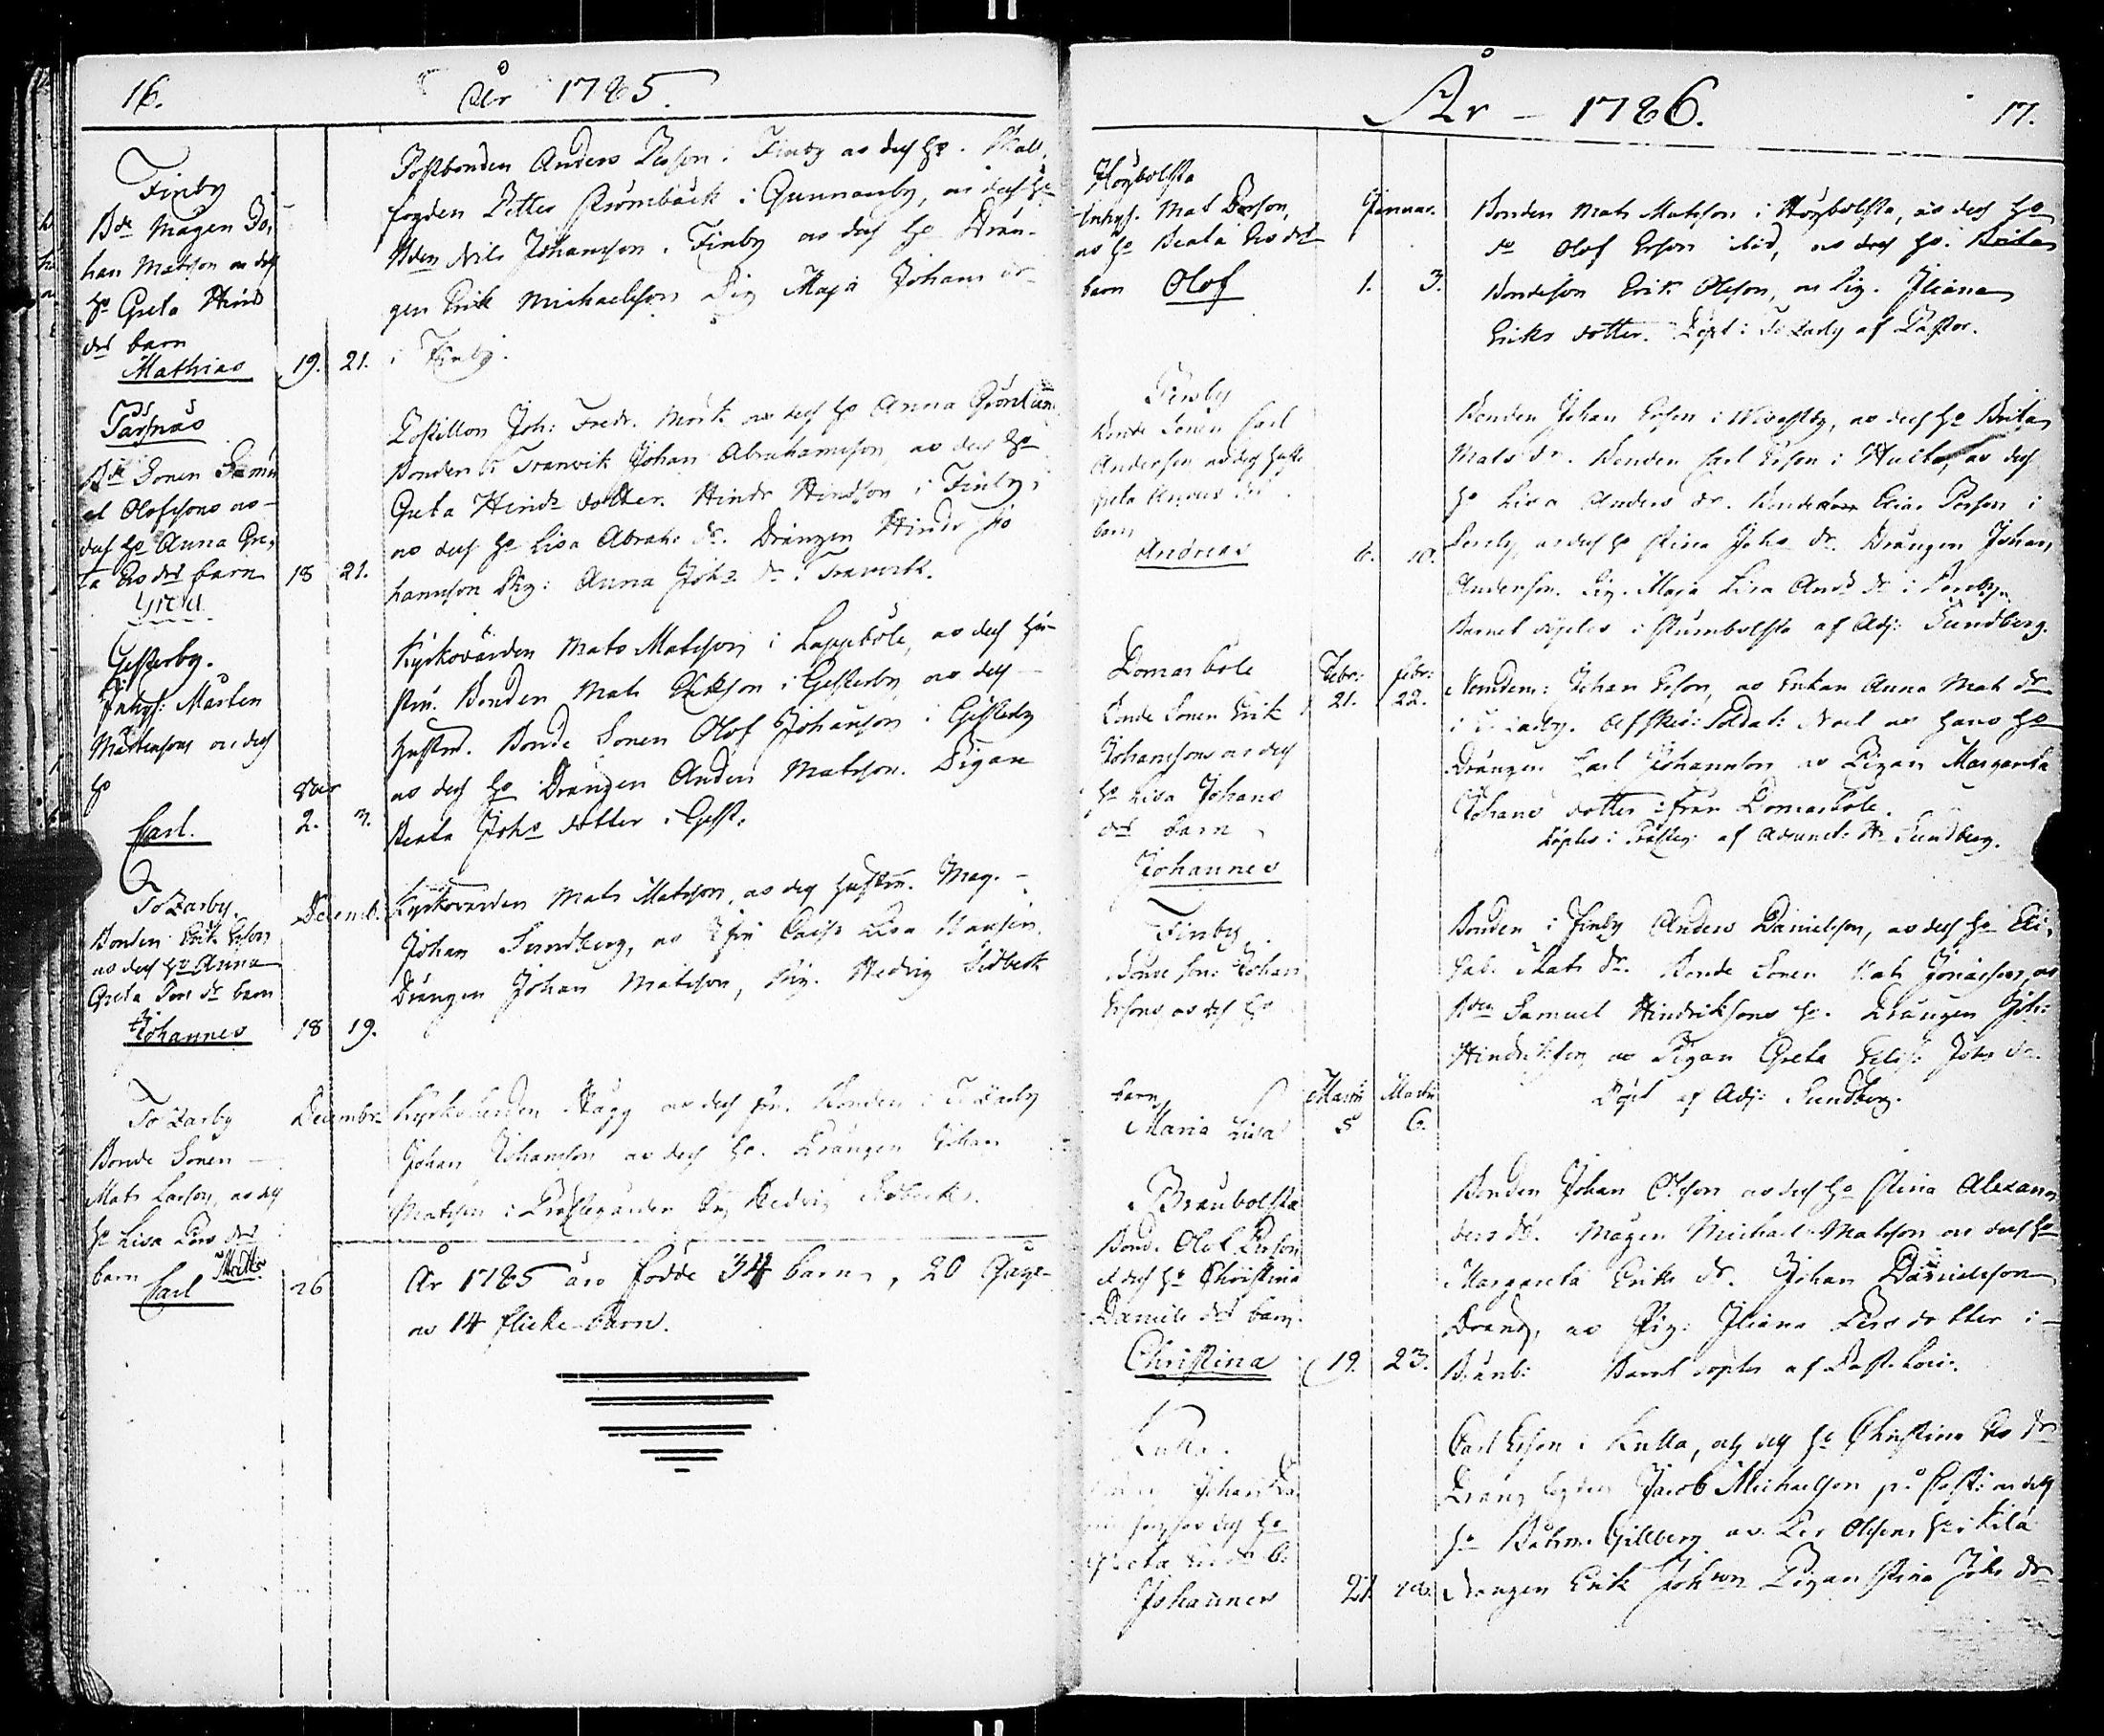 16.
År 1785.
Finby
Bde Mågen Jo,
han Matsson os dess
ho Greta Hind
dr barn
Mathias
19. 21.
Postbonden Anders Persson i Finby os dess ho. Skall,
fogden Petter Strömbäck i Gunnarsby, os dess ho
Bden Nils Johansson i Finby os dess ho Drän-
gen Erik Michaelsson Pig Maja Johans dr
i Finby.
Parsnäs
Bde Sonen Samu
el Olofssons os
dess ho Anna Gre,
ta Ers dr barn
Greta
18 21.
Postillon Joh: Fredr. Mörk os dess ho Anna Grönlund
Bonden i Tranvik Johan Abrahamsson os dess ho
Greta Hindr dotter. Hindr Hindsson i Finby,
os dess ho Lisa Abrah: dr. Drängen Hindr Jo
hannson Pig: Anna Johs dr i Tranvik.
Gesterby.
Inhys: Mårten
Mårtensons os dess
ho
Carl.
2. 3.
Kyrkovärden Mats Matsson i Lappböle, os dess hu-
stru. Bonden Mats Ericksson i Gesterby os dess
hustru. Bonde Sonen Olof Johansson i Gesterby
os dess ho Drängen Anders Matsson. Pigan
Beata Johs dotter i Gest.
To Zarby.
Bonden Erik Ersson
os dess ho Anna
Greta Pers dr barn
Johannes
Decemb.
18 19.
Kyrkovärden Mats Matsson, os dess hustru. Mag.
Johan Sundberg, os Jfru Cajsa Lisa
Drängen Johan Matsson, Pig. Hedvig Sedbeck
To Zarby
Bonde Sonen
Mats Larsson, os dess
ho Lisa Pers dr
barn Matts
Carl
Decembr.
26
Hägg os dess ho. Bonden i To Zarby
Johan Johansson os dess ho. Drängen Johan
Matsson i Prästegården Pig Hedvig Sedbeck.
År 1785 äro födde 34 barn, 20 Gåsse-
os 14 flicke-barn.
År - 1786.
17.
Höyböllsta
Inhys. Mat Persson,
os ho Beata Ers dr
barn Olof
Januar.
1. 3.
Bonden Mats Matsson i Höyböllsta, os dess ho
do Olof Ersson ibid, os dess ho. Brita
Bondeson Erik Olsson, os Pig. Juliana
Eriks dotter. Döpt i To Zarby af Pastor.
Finby
Bonde Sonen Carl
Andersson os dess hustr
Greta Anders dr
barn
Andreas
6. 10.
Bonden Johan Ersson i, os dess ho Brita
Mats dr. Bonden Carl Ersson i Hulta, os dess
ho Lisa Anders dr. Elias Persson i
Perseby, os dess ho Stina Johs dr. Drängen Johan
Andersson. Pig. Maja Lisa Ands dr i Perseby.
Barnet döptes i Stumbollsta af Adj: Sundberg.
Domarböle
Bonde Sonen Erik
Johanssons os dess
ho Lisa Johans
dr barn
Johannes
Febr: febr:
21. 22.
Nemdem: Johan Ersson, os Enkan Anna Mats dr
i To Zarby. Afsked: Soldat: Noel os hans ho
Drängen Carl Johannsson os Pigan Margareta
Johans dotter ifrån Domarböle.
Döptes i Prösteg. af Adjunct: Hr Sundberg.
Finby
Bonde Son: Johan
Erssons os dess ho
barn
Maria Lisa
Martii Martii
5 6.
Bonden i Finby Anders Danielsson, os dess ho Eli,
sab. Mats dr. Bonde Sonen Mats Jönasson, os
Bden Samuel Hindrikssons ho. Drängen Joh:
Hindriksson os Pigan Greta Elis: Johs dr.
Döpt af Adj: Sundberg.
Brånbolsta
Bond. Olof Persson
el dess ho Christina
Daniels dr barn.
Christina
19. 23.
Bonden Johan Olsson os dess ho Stina Alexan
ders dr. Mågen Michael Matsson os dess ho
Margareta Eriks dr. Johan Danielsson
Dräng, os Pig: Juliana Pers dotter i
Brånb: Barnet döptes af Past. Loci.
Kulla.
Johan Da
os dess ho
Greta
Johannes
21.
Carl Ersson i Kulla, os dess ho Christina Ers dr
Dräng fogden Jacob Michaelsson på os dess
ho Båtsm. Gillberg os Per Olssons ho i Kila
Drängen Erik Johsson Pigan Stina Johs dr